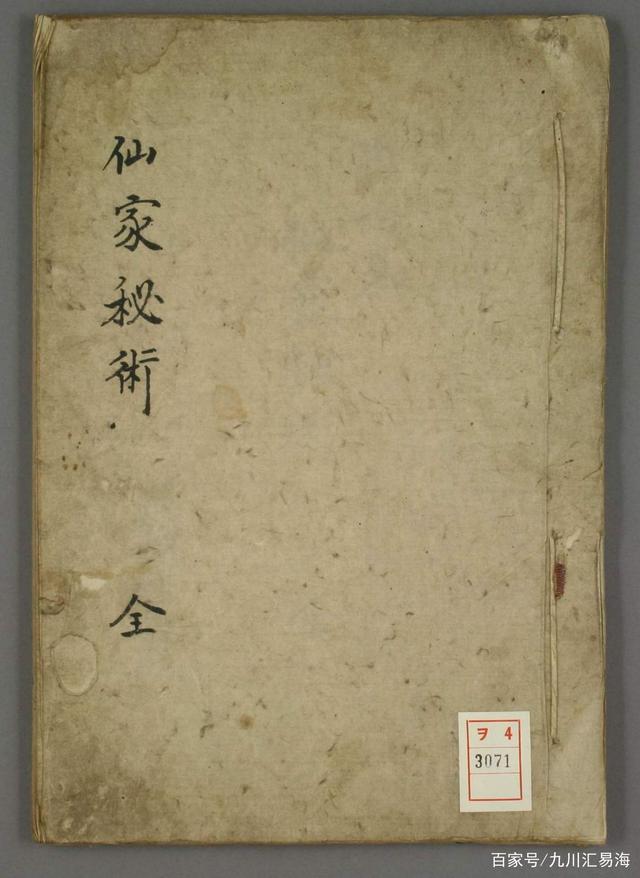 仙家秘術
全
ヲ 4
3071
百家号/九川汇易海